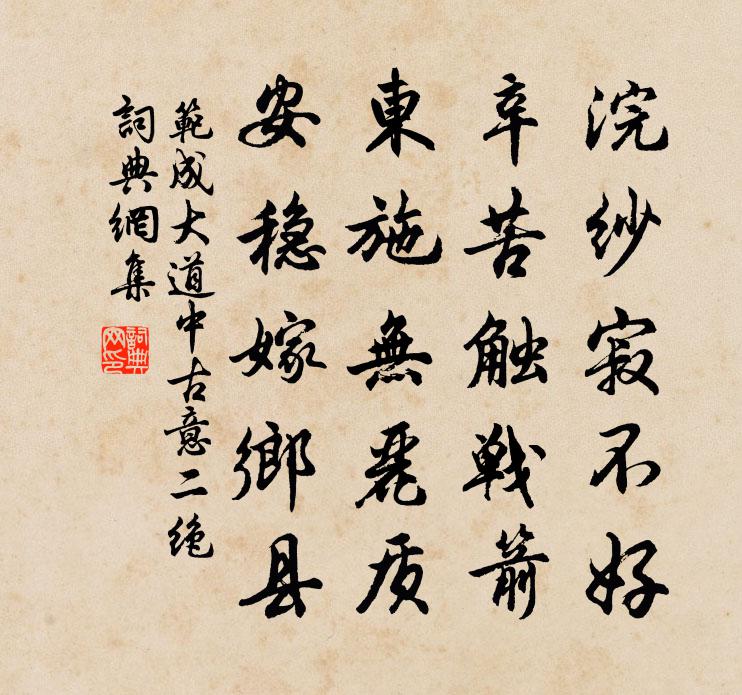 浣纱寂不好
辛苦触戦箭
東施無麗质
安稳嫁鄉县
範成大道中古意二绝
詞典網集
詞典网印